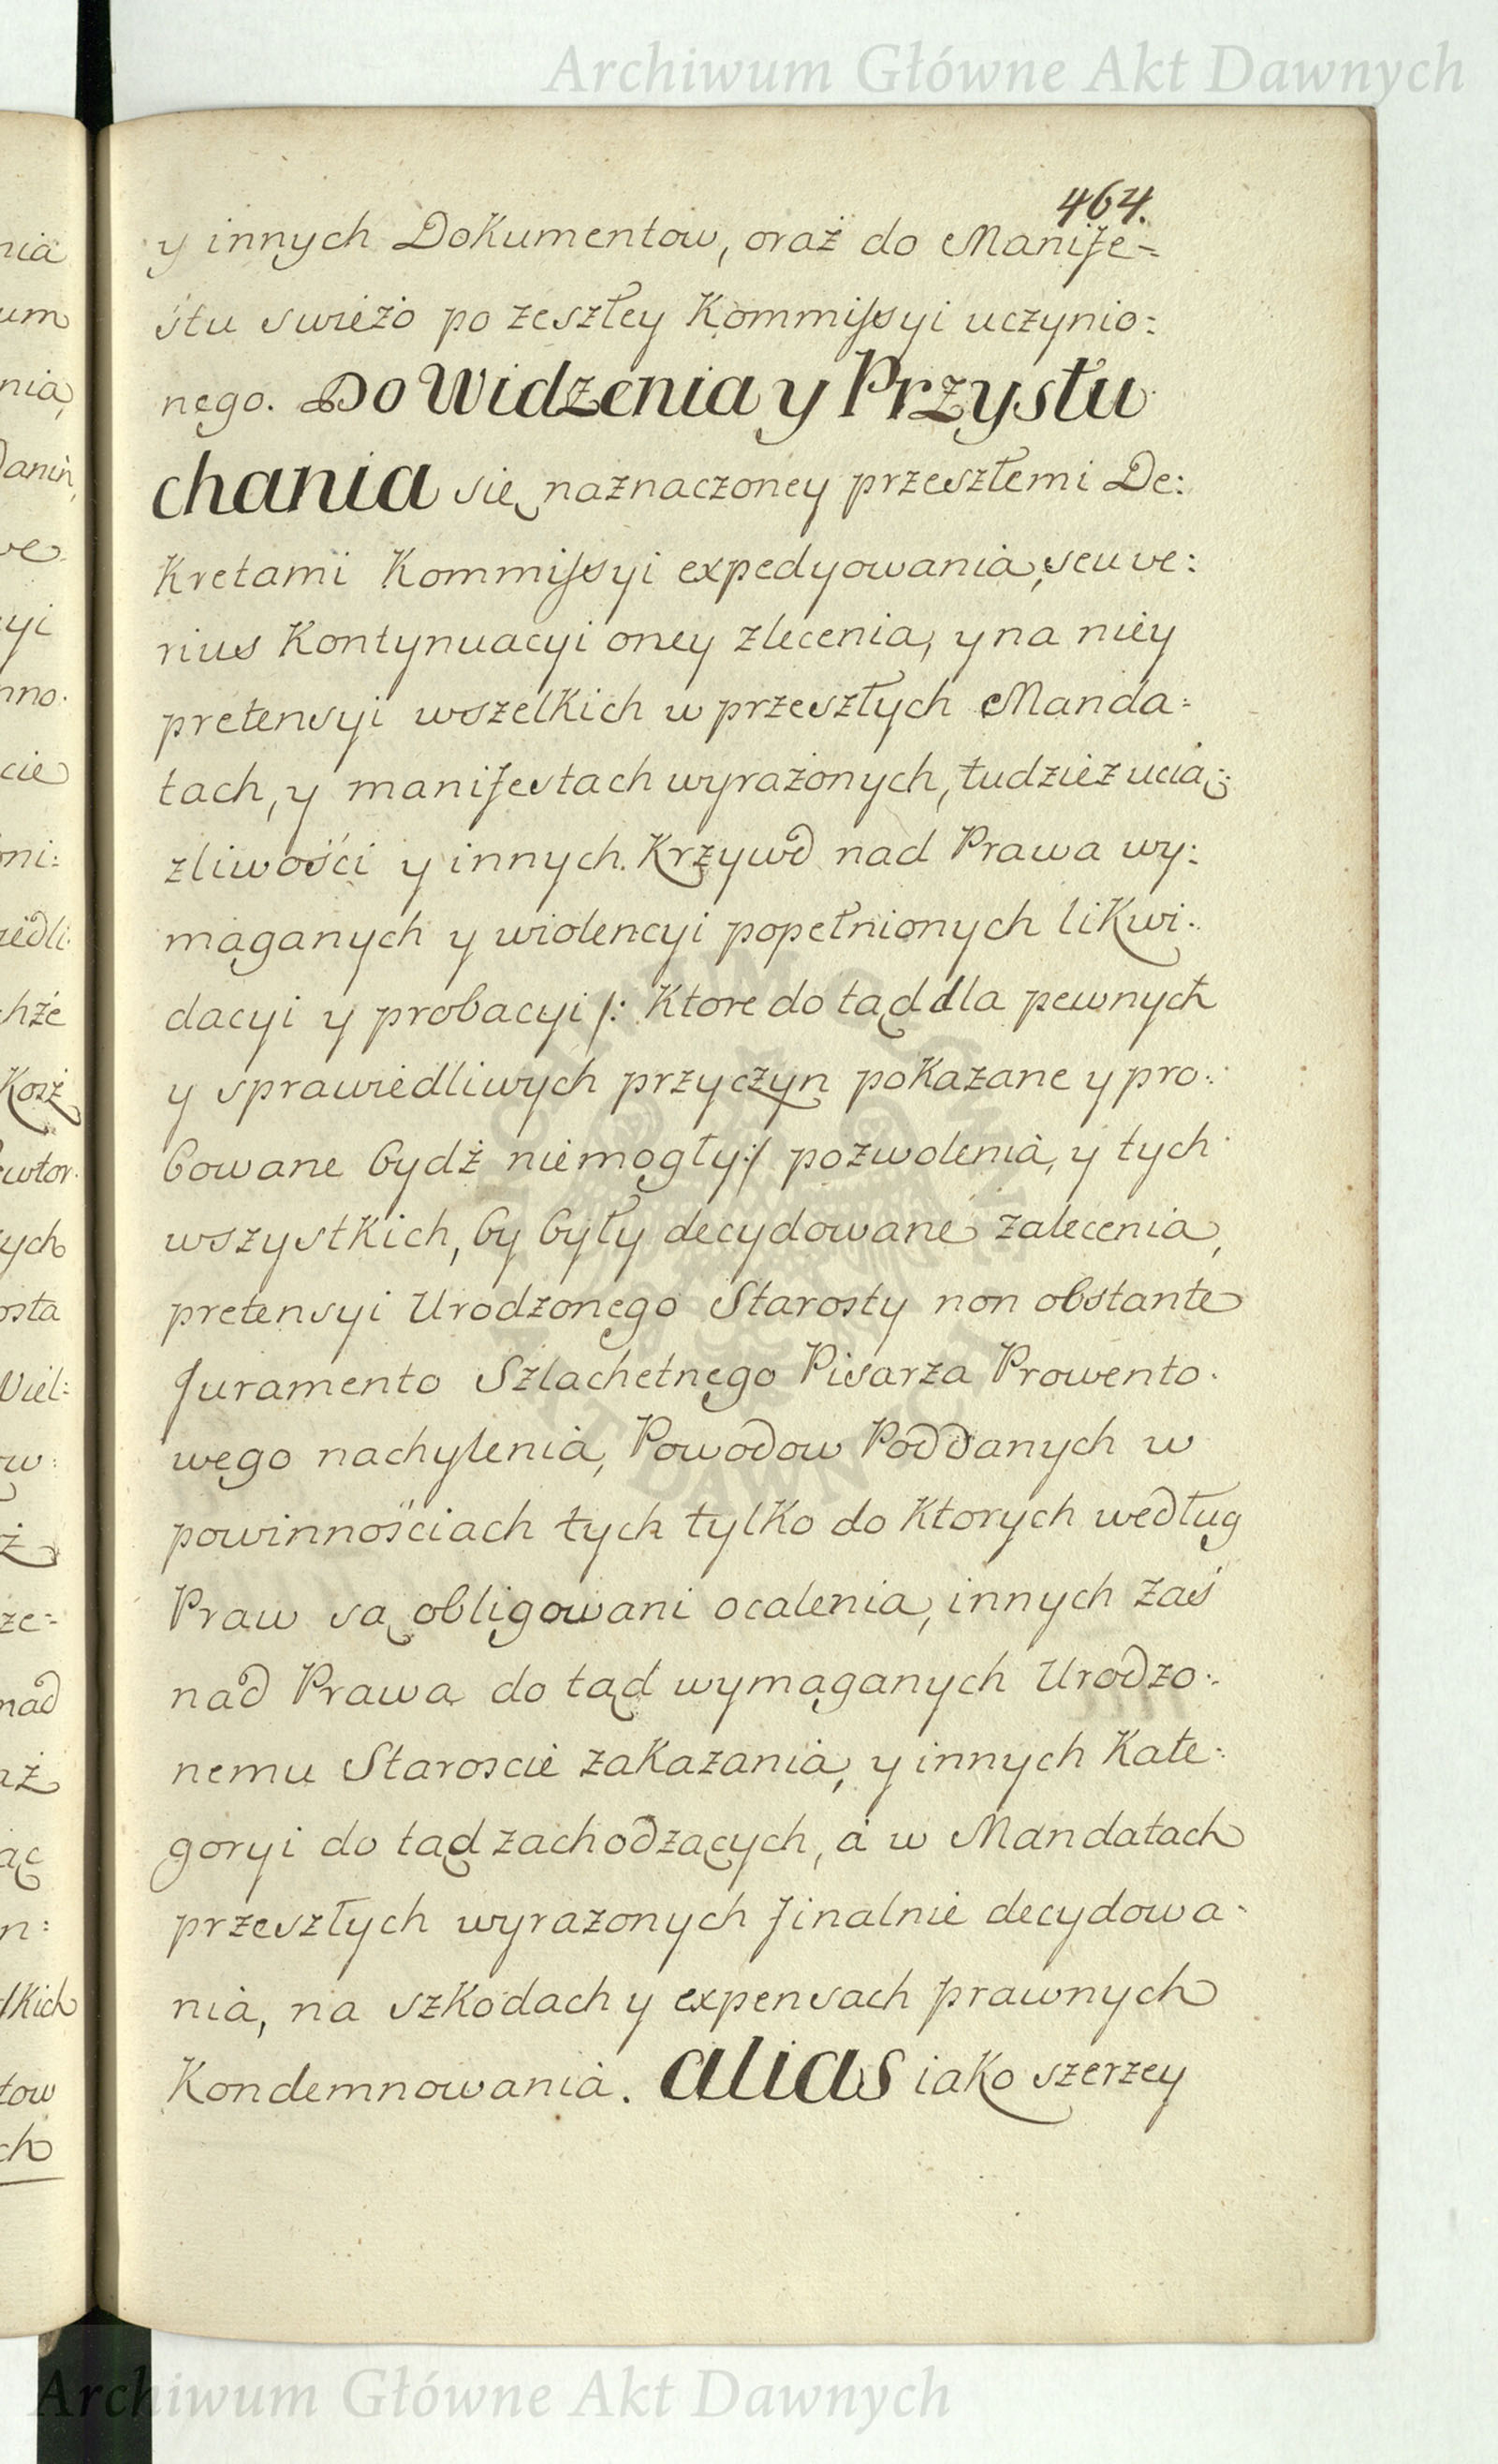 Archiwum Główne Akt Dawnych
464.
y innych Dokumentow, oraż do Manife=
stu swieżo po zeszłey Kommissyi uczynio:
nego. Do Widzenia y Przystu
chania się naznaczoney przeszłemi De:
kretami Kommissyi expedyowania, seu ve:
rius Kontynuacyi oney zlecenia, y na niey
pretensyi wszelkich w przeszłych Manda=
tach, y manifestach wyrażonych, tudzież ucią:
zliwości y innych Krzywd nad Prawa wy:
maganych y wiolencyi popełnionych likwi:
dacyi y probacyi /: Ktore do tąd dla pewnych
y sprawiedliwych przyczyn pokazane y pro:
bowane bydź niemogły :/ pozwolenia, y tych
wszystkich, by były decydowane zalecenia,
pretensyi Urodzonego Starosty non obstante
Juramento Szlachetnego Pisarza Prowento:
wego nachylenia, Powodow Poddanych w
powinnościach tych tylko do Ktorych według
Praw są obligowani ocalenia, innych zaś
nad Prawa do tąd wymaganych Urodzo:
nemu Staroscie zakazania, y innych Kate:
goryi do tąd zachodzących, a w Mandatach
przeszłych wyrazonych finalnie decydowa:
nia, na szkodach y expensach prawnych
Kondemnowania. alias iako szerzey
Archiwum Główne Akt Dawnych